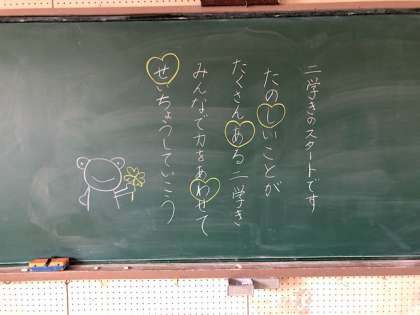 二学きのスタートです
たのしいことが
たくさんある二学き
みんなで力をあわせて
せいちょうしていこう